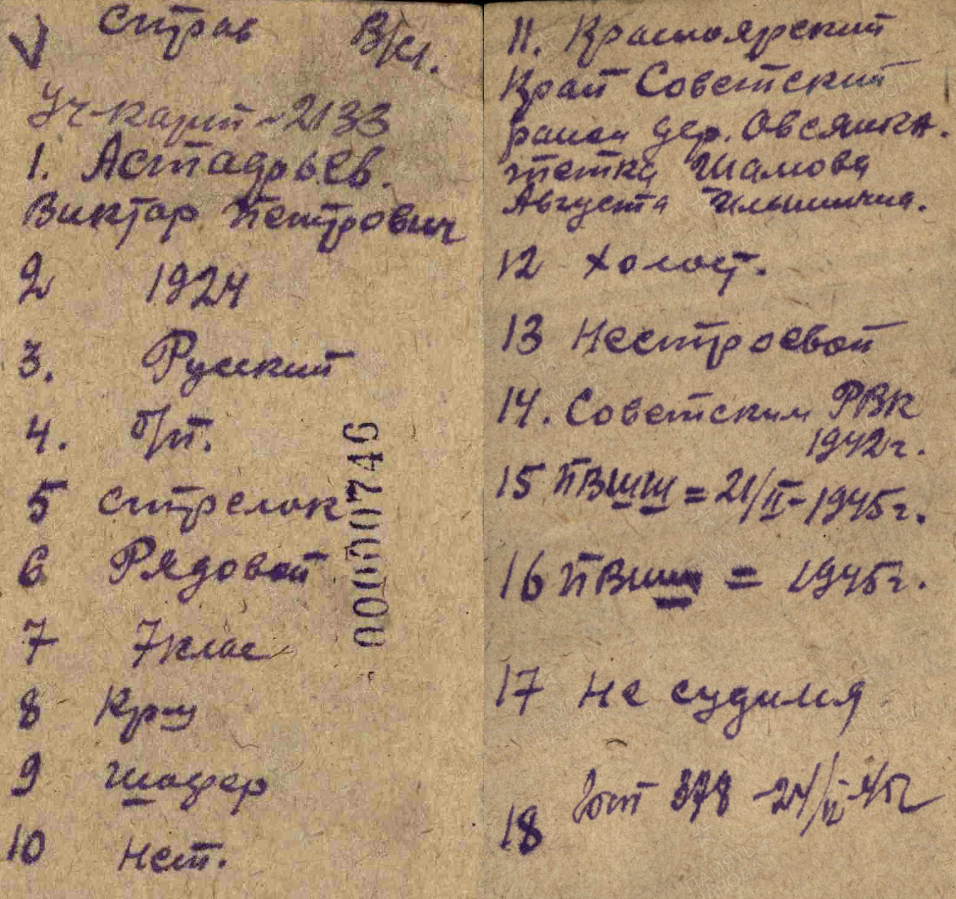 Страв В/сл.
Уч-карт-2133
1. Астадрьев.
Виктор Петрович
2 1924
3. Русский
4. б/п.
5 стрелок
6 Рядовой
7 7 клас
8 Кр-у
9 шофер
10 Нет.
000000746
11. Красноярский
Край Советский
район дер. Овсянка.
тетка Шамова
Августа Ильинична.
12 холост.
13 Нестроевой
14. Советским РВК
1942г.
15 = 21/II-1945г.
16 = 1945г.
17 Не судимя
18 378 -24/II-45г